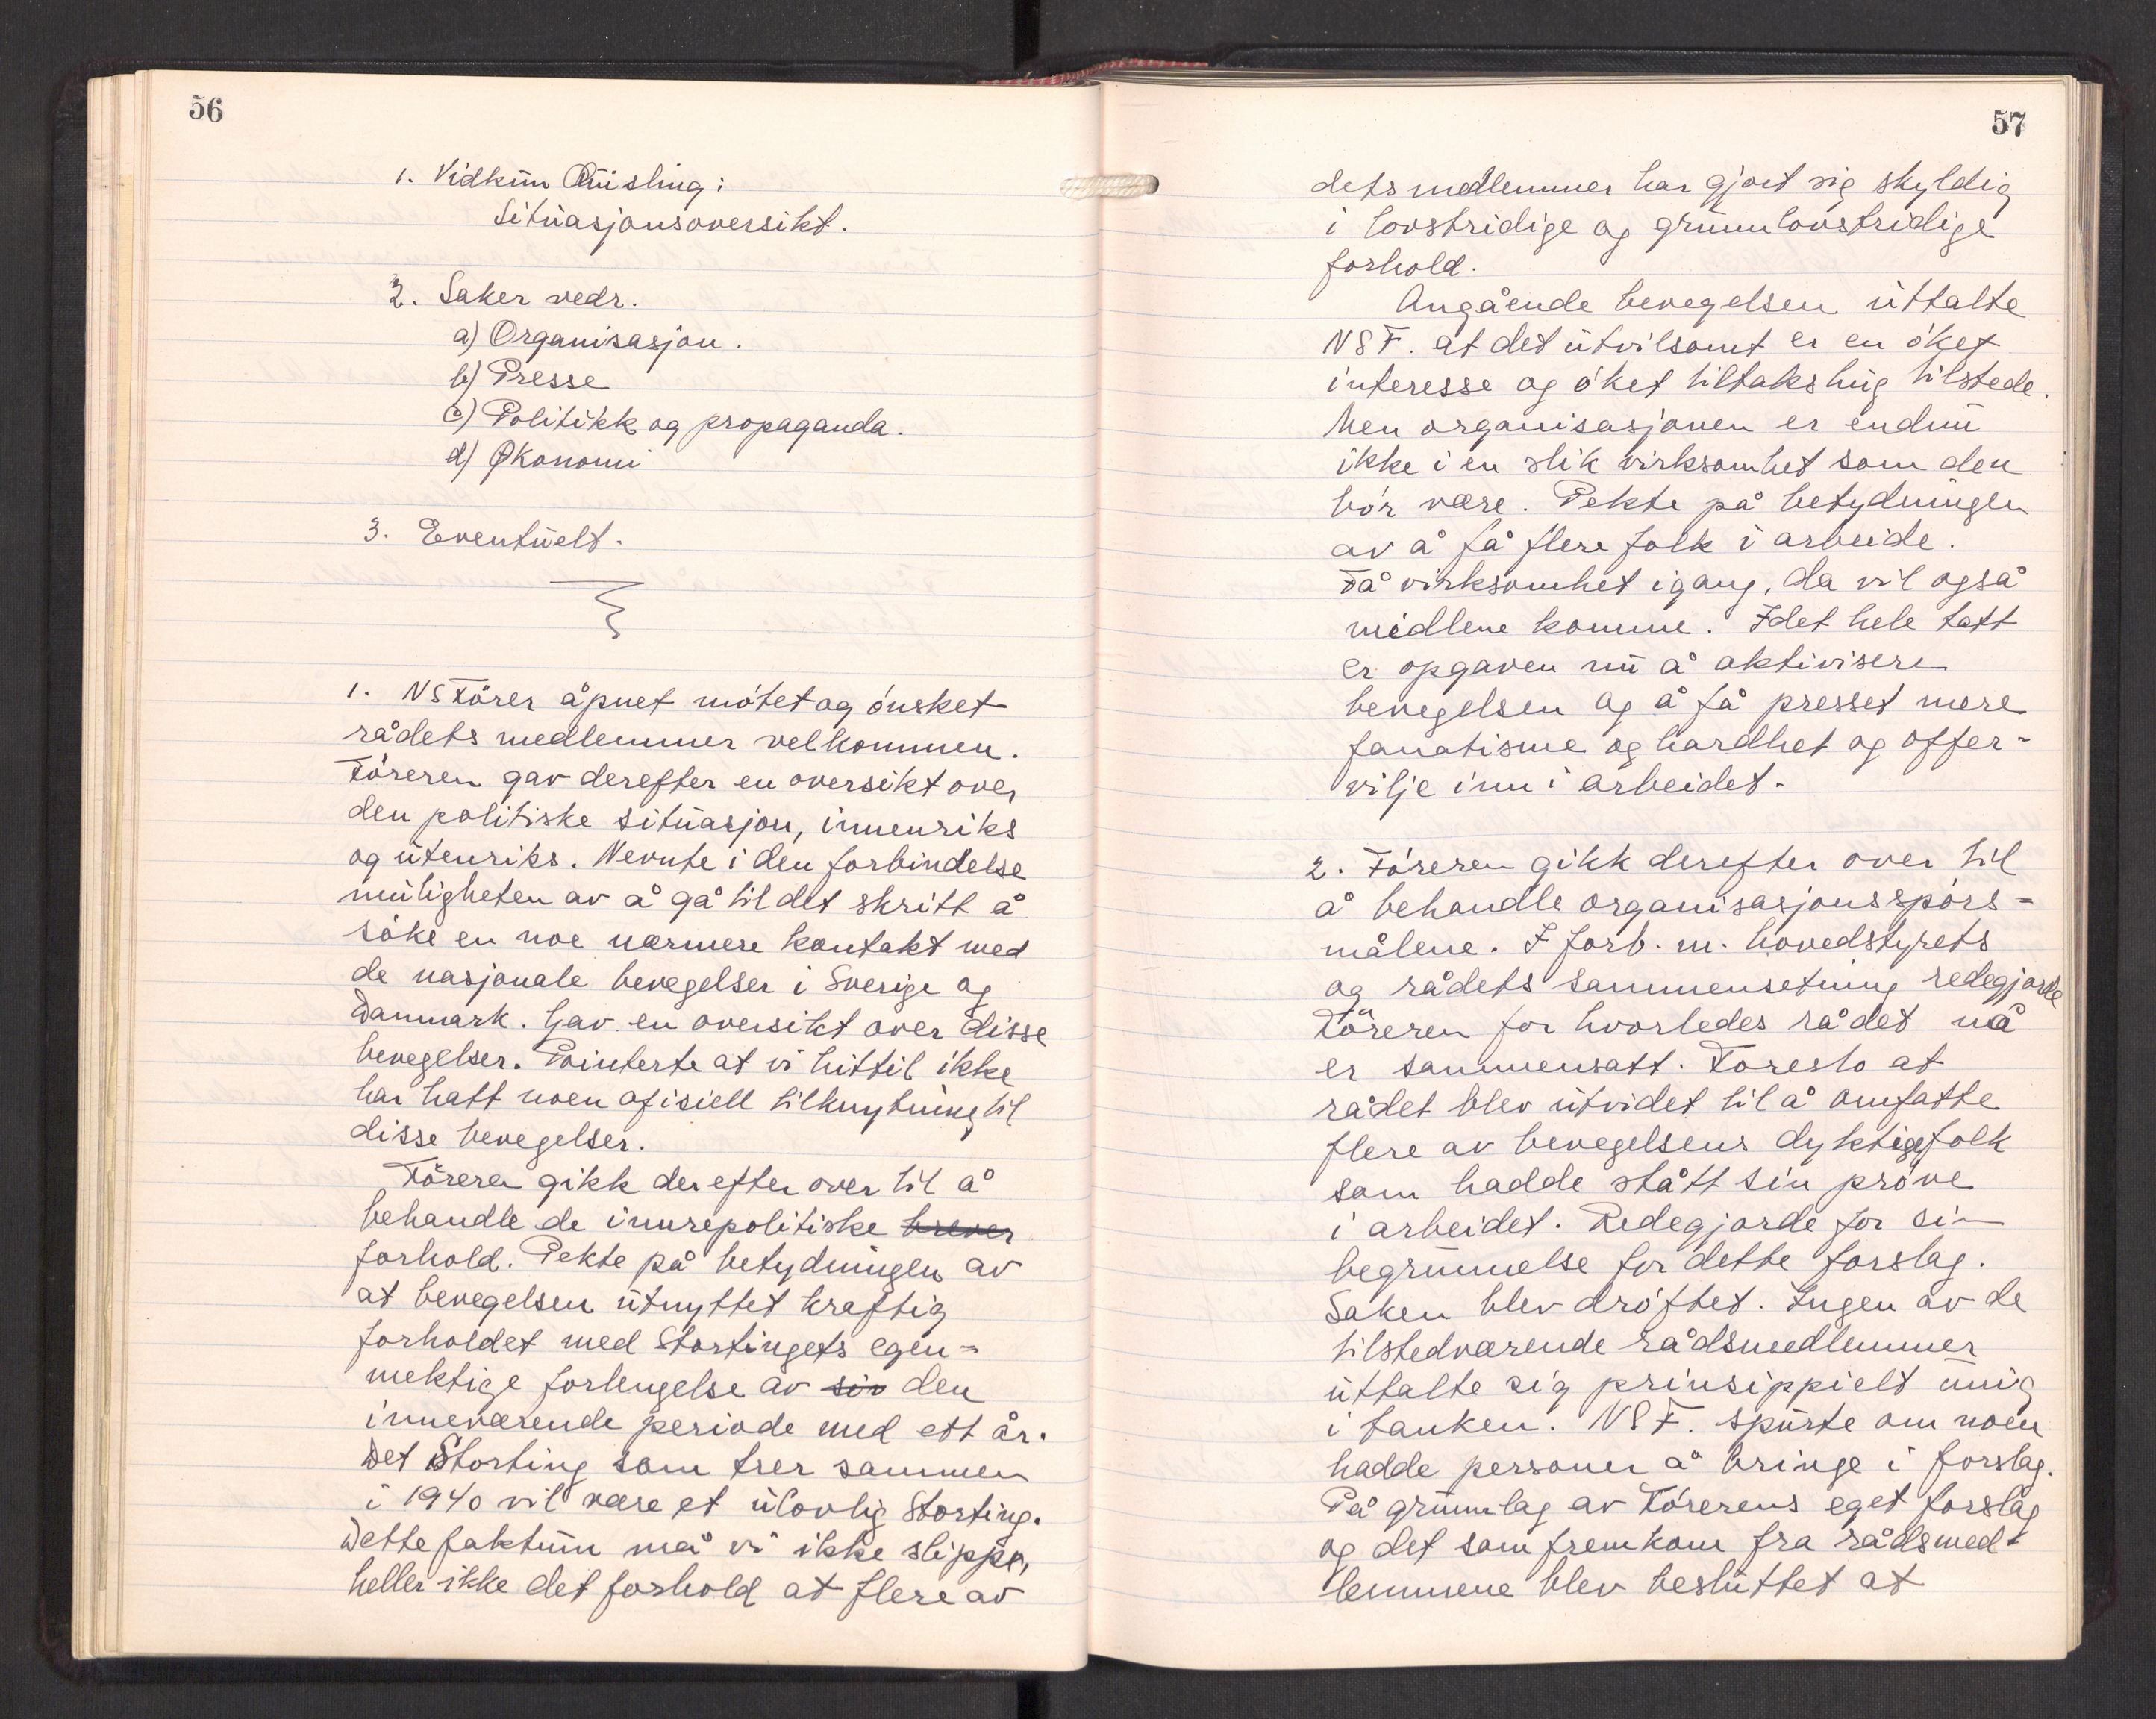 56
1. Vidkun Quisling:
Situasjonsoversikt.
2. Saker vedr.
a) Organisasjon.
b) Presse
c) Politikk og propaganda.
d) Økonomi
3. Eventuelt.
1. NS Förer åpnet mötet og önsket
rådets medlemmer velkommen.
Föreren gav derefter en oversikt over
den politiske situasjon, innenriks
og utenriks. Nevnte i den forbindelse
muligheten av å gå til det skritt å
söke en noe nærmere kontakt med
de nasjonale bevegelser i Sverige og
Danmark. Gav en oversikt over disse
bevegelser. Pointerte at vi hittil ikke
har hatt noen ofisiell tilknytning til
disse bevegelser.
Föreren gikk derefter over til å
behandle de innrepolitiske brever
forhold. Pekte på betydningen av
at bevegelsen utnyttet kraftig
forholdet med Stortingets egen-
mektige forlengelse av sin den
inneværende periode med ett år.
Det Storting som trer sammen
i 1940 vil være et ulovlig Storting.
Dette faktum må vi ikke slippe,
heller ikke det forhold at flere av
57
dets medlemmer har gjort sig skyldig
i lovstridige og grunnlovstridige
forhold.
Angående bevegelsen uttalte
NSF. at det utvilsomt er en öket
interesse og öket tiltakshug tilstede.
Men organisasjonen er endnu
ikke i en slik virksomhet som den
bör være. Pekte på betydningen
av å få flere folk i arbeide.
Få virksomhet igang, da vil også
midlene komme. I det hele tatt
er opgaven nu å aktivisere
bevegelsen og å få presset mere
fanatisme og hardhet og offer-
vilje inn i arbeidet.
2. Föreren gikk derefter over til
å behandle organisasjonsspörs-
målene. I forb. m. hovedstyrets
og rådets sammensetning redegjorde
Föreren for hvorledes rådet nå
er sammensatt. Foreslo at
rådet blev utvidet til å omfatte
flere av bevegelsens dyktige folk
som hadde stått sin pröve
i arbeidet. Redegjorde for sin
begrunnelse for dette forslag.
Saken blev dröftet. Ingen av de
tilstedværende rådsmedlemmer
uttalte sig prinsippielt uenig
i tanken. NSF. spurte om noen
hadde personer å bringe i forslag.
På grunnlag av Förerens eget forslag
og det som fremkom fra rådsmed-
lemmene blev besluttet at